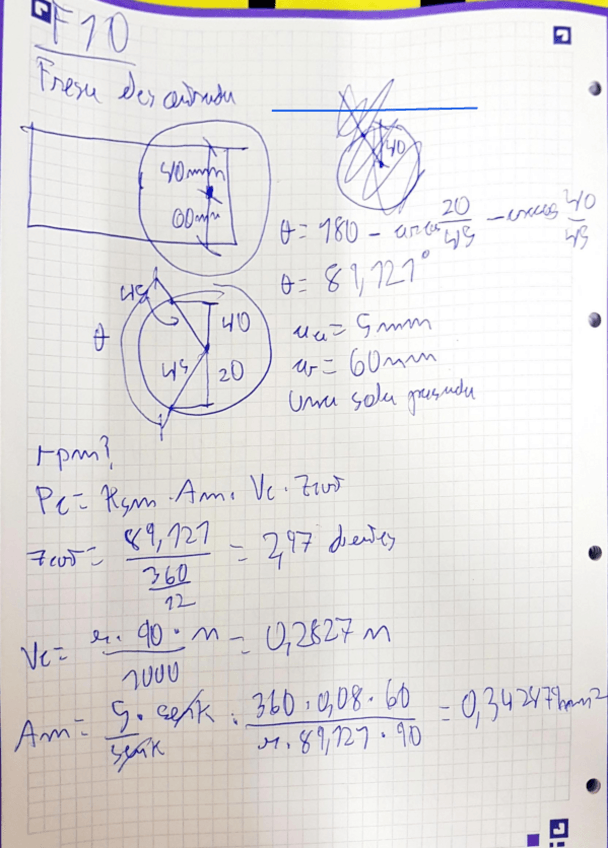 F10
Fresa descentrada
40mm
60mm
40
θ = 180 - arcos 20/45 - arcos 40/45
θ = 89,121°
45
θ
40
45
20
aa = 5mm
ar = 60mm
Una sola pasada
rpm?
Pc = Ksm · Am · Vc · Zcor
Zcor = 89,121 / (360/12) = 2,97 dientes
Vc = π · 90 · n / 1000 = 0,2827 n
Am = 5 · senk / senk · 360 · 0,08 · 60 / π · 89,121 · 90 = 0,342879mm²